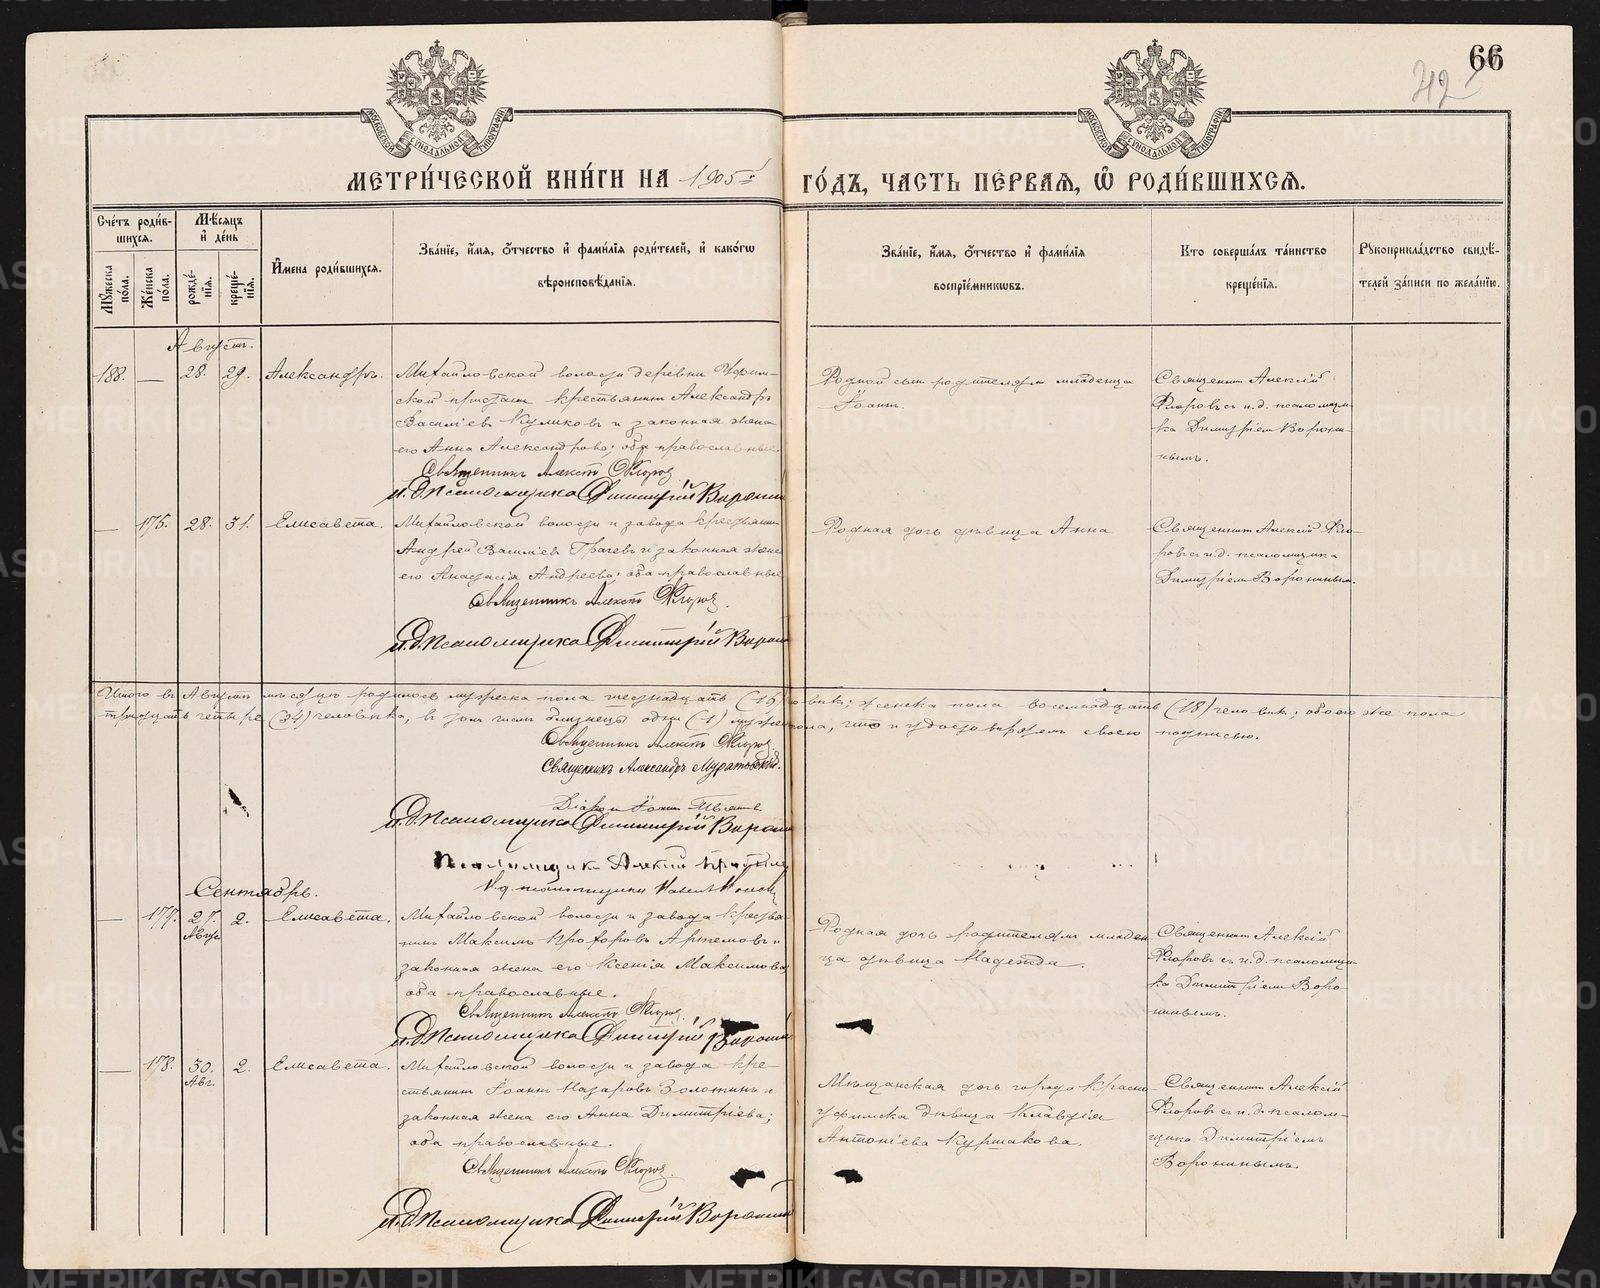 66
42
МОСКОВСКОЙ СУНОДАЛЬНОЙ ТИПОГРАФІИ
МОСКОВСКОЙ СУНОДАЛЬНОЙ ТИПОГРАФІИ
МЕТРИ́ЧЕСКОЙ КНИ́ГИ НА 1905й ГО́ДЪ, ЧАСТЬ ПЕ́РВАЯ, Ѽ РОДИ́ВШИХСЯ.
Сче́тъ роди́в-
шихся.
Мꙋ́жеска по́ла.
Же́нска по́ла.
Мѣ́сяцъ
и҆ де́нь
рожде́-
нїя.
креще́-
нїя.
И҆мена роди́вшихся.
Зва́нїе, и҆́мя, ѻ҆́тчество и҆ фами́лїя роди́телей, и҆ како́гѡ
вѣроисповѣ́данїя.
Зва́нїе, и҆́мя, ѻ҆́тчество и҆ фами́лїя
воспрїе́мникѡвъ.
Кто соверша́лъ та́инство
креще́нїя.
Рꙋкоприкла́дство свидѣ́-
телей за́писи по жела́нїю.
Августъ.
188. — 28. 29. Александръ.
Михайловской волости деревни Уфим-
ской пристани крестьянинъ Александръ
Василіевъ Куликовъ и законная жена
его Анна Александрова; оба православные
Священникъ Алексій Флоровъ
и.д. псаломщика Димитрій Воронин
Родной сынъ родителямъ младенца
Іоаннъ.
Священникъ Алексій
Флоровъ съ и.д. псаломщи-
ка Димитріемъ Ворони-
нымъ.
— 175. 28. 31. Елисавета.
Михайловской волости и завода крестьянинъ
Андрей Василіевъ Грачевъ и законная жена
его Анастасія Андреева; оба православные
Священникъ Алексій Флоровъ.
и.д. псаломщика Димитрій Ворони
Родная дочь дѣвица Анна
Священникъ Алексій Фло-
ровъ съ и.д. псаломщика
Димитріемъ Воронинымъ.
Итого въ Августѣ мѣсяцѣ родилось мужеска пола шестнадцать (16) человѣкъ; женска пола восемнадцать (18) человѣкъ; обоего же пола
тридцать четыре (34) человѣка, въ томъ числѣ близнецы одни (1) мужеска пола, что и удостовѣряемъ своею подписью.
Священникъ Алексій Флоровъ
Священникъ Александръ Муратовскій.
Діаконъ Іоаннъ
и.д. псаломщика Димитрій Ворони
Псаломщикъ Алексій
И.д. псаломщика
Сентябрь.
— 177. 27. Авгус. 2. Елисавета.
Михайловской волости и завода крестья-
нинъ Максимъ Прохоровъ Артемовъ и
законная жена его Ксенія Максимова
оба православные.
Священникъ Алексій Флоровъ.
и.д. псаломщика Димитрій Воронин
Родная дочь родителямъ младен-
ца дѣвица Надежда.
Священникъ Алексій
Флоровъ съ и.д. псаломщи-
ка Димитріемъ Воро-
нинымъ.
— 178. 30. Авг. 2. Елисавета.
Михайловской волости и завода кре-
стьянинъ Іоаннъ Назаровъ Золотинъ и
законная жена его Анна Димитріева;
оба православные.
Священникъ Алексій Флоровъ.
и.д. псаломщика Димитрій Воронин
Мѣщанская дочь города Красно-
уфимска дѣвица Клавдія
Антоніева Куршакова.
Священникъ Алексій
Флоровъ съ и.д. псалом-
щика Димитріемъ
Воронинымъ.
METRIKI.GASO-URAL.RU